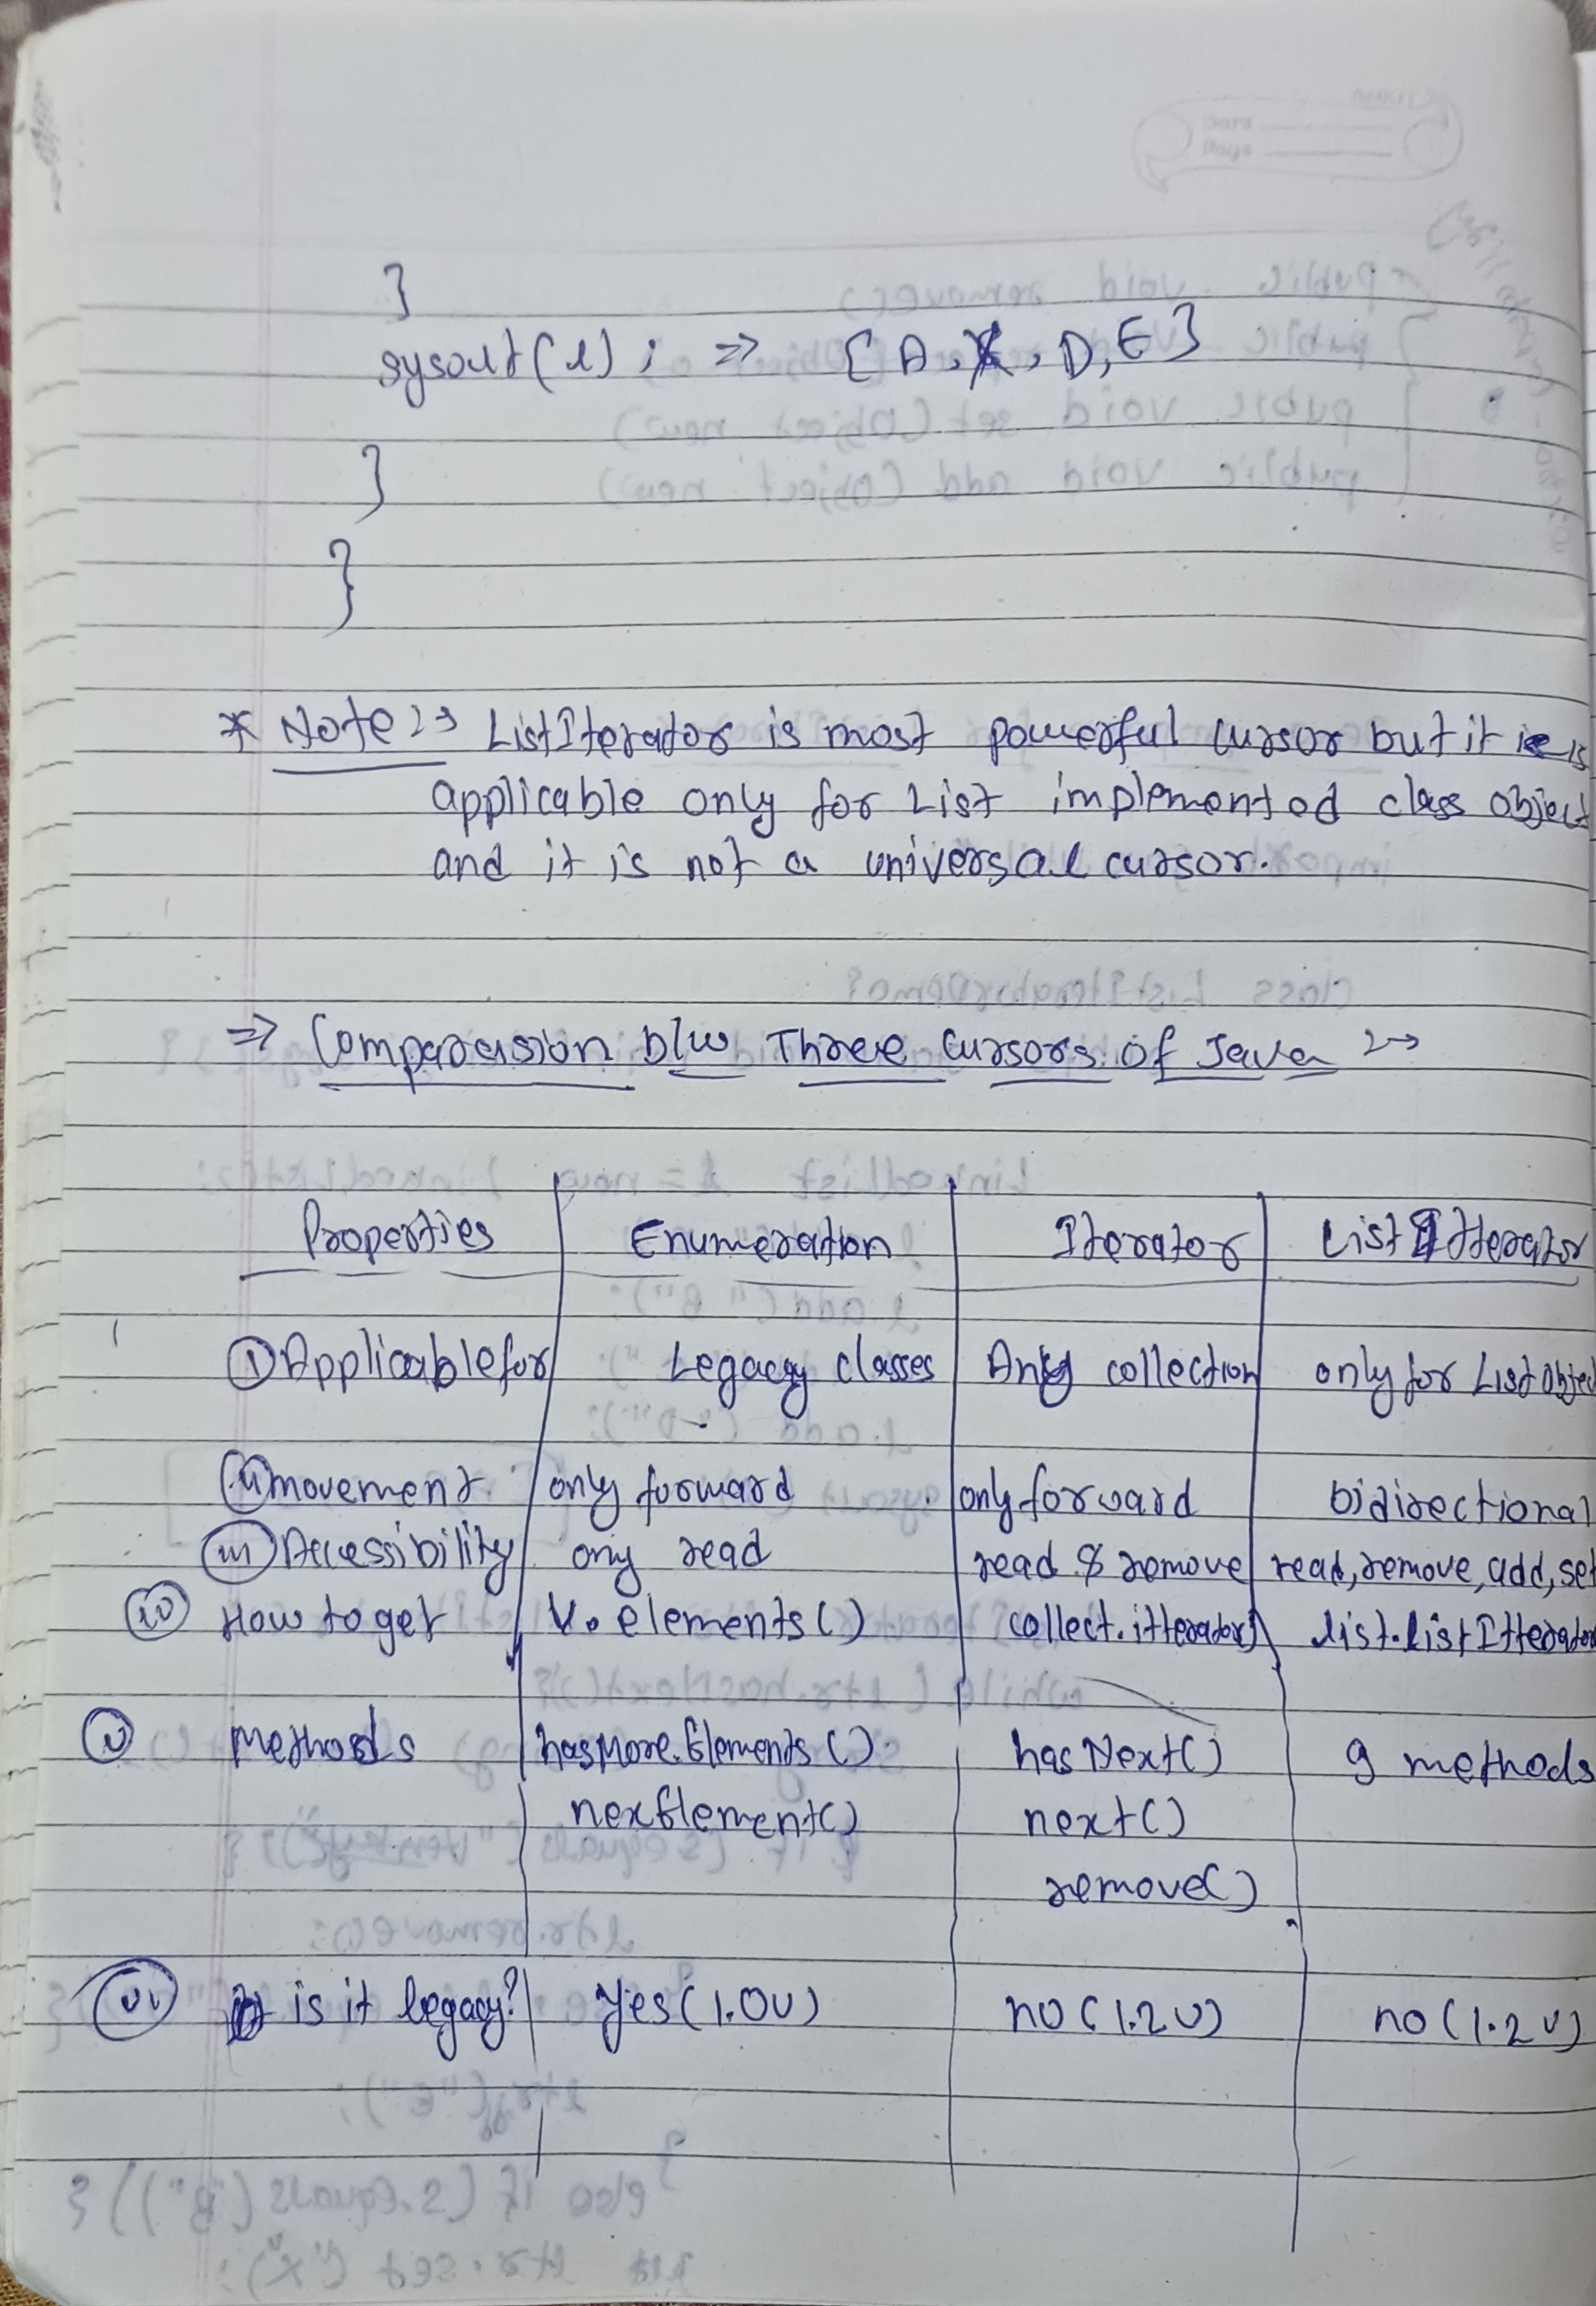 }
sysout(l); => [A, X, D, E}
}
}
* Note :→ ListIterator is most powerful cursor but it is
applicable only for List implemented class object
and it is not a universal cursor.
=> Comparasion b/w Three cursors of Java :→
Properties Enumeration Iterator List Itterator
(i) Applicable for Legacy classes Any collection only for List Objec
(ii) movement only forward only forward bidirectional
(iii) Accessibility only read read & remove read, remove, add, set
(iv) How to get V. elements() collect.itterator() list.listItterator
(v) Methods hasMore.Elements() hasNext() 9 methods
nexElement() next()
remove()
(vi) is it legacy? Yes (1.0v) no (1.2v) no (1.2v)